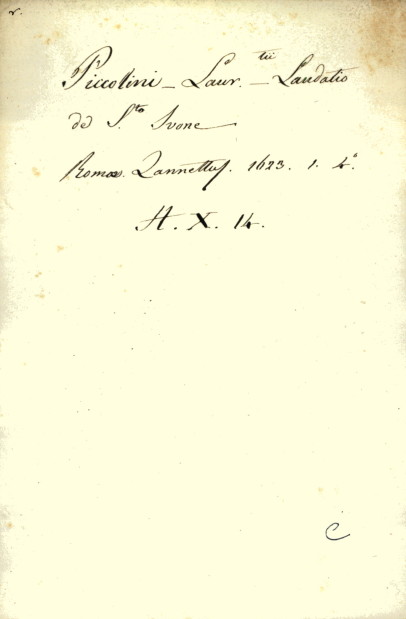 r.
Piccolini _ Laur.tii _ Laudatio
de S.to Ivone
Romæ. Zannettus. 1623. 1. 4.°
H. X. 14.
C